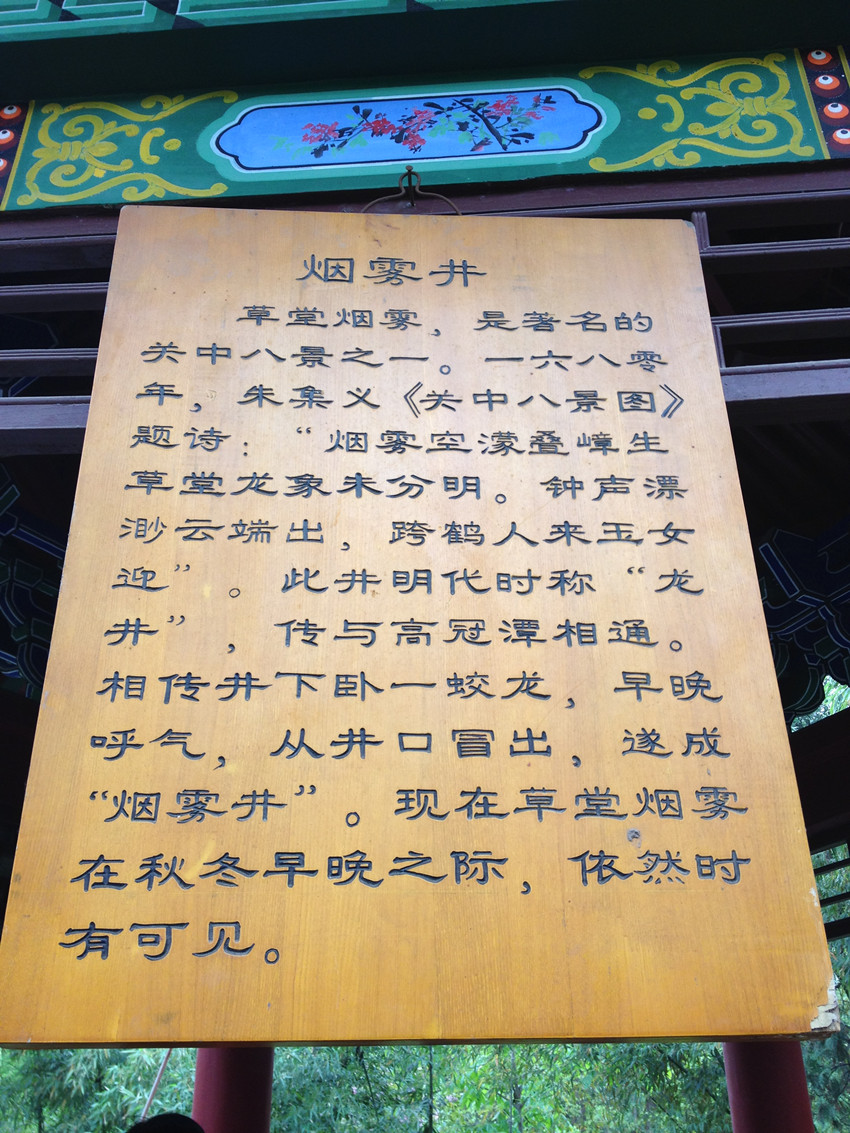 烟雾井
草堂烟雾，是著名的
关中八景之一。一六八零
年，朱集义《关中八景图》
题诗：“烟雾空濛叠嶂生
草堂龙象未分明。钟声漂
渺云端出，跨鹤人来玉女
迎”。此井明代时称“龙
井”，传与高冠潭相通。
相传井下卧一蛟龙，早晚
呼气，从井口冒出，遂成
“烟雾井”。现在草堂烟雾
在秋冬早晚之际，依然时
有可见。